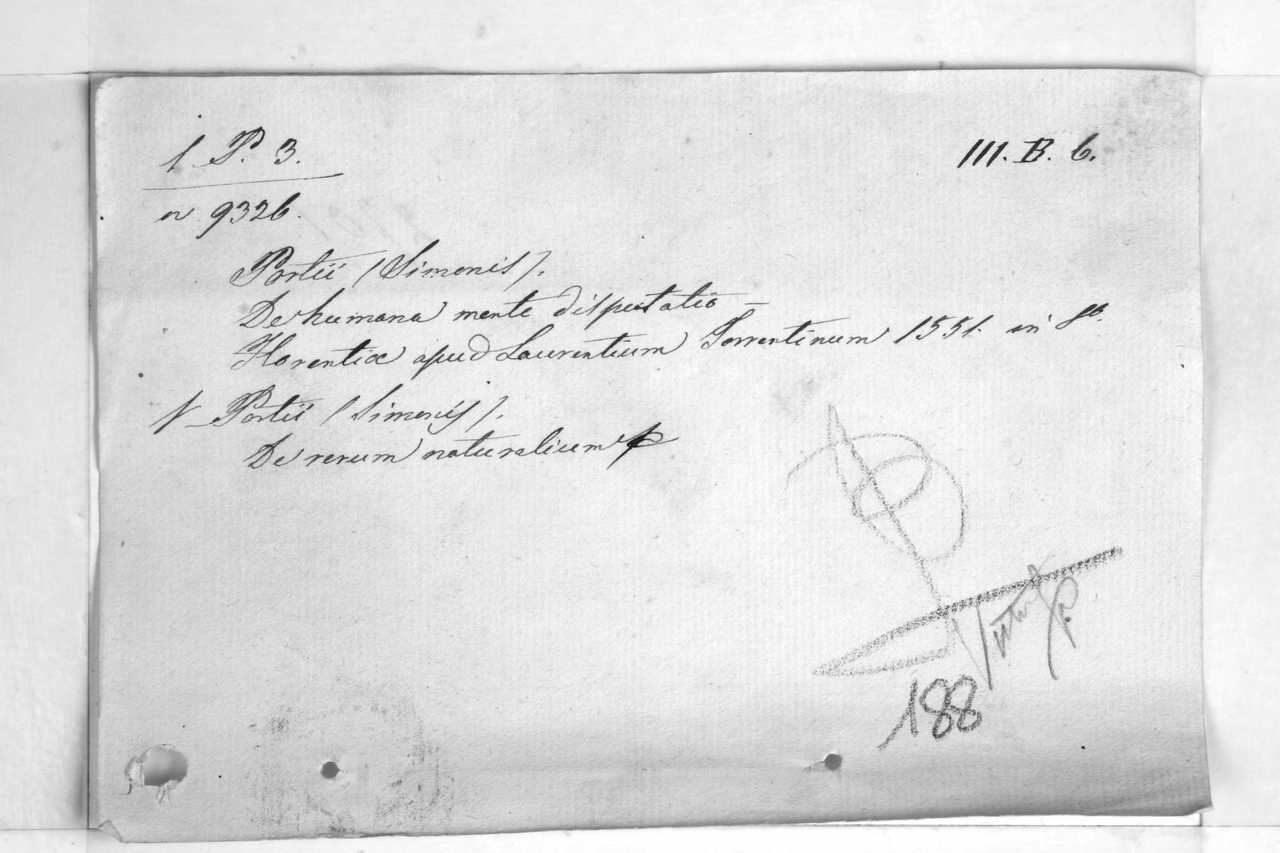 1 P. 3.
III. B. 6.
n 9326.
Portii (Simonis).
De humana mente disputatio —
Florentiæ apud Laurentium Torrentinum 1551. in 8º.
V Portii (Simonis).
De rerum naturalium
188